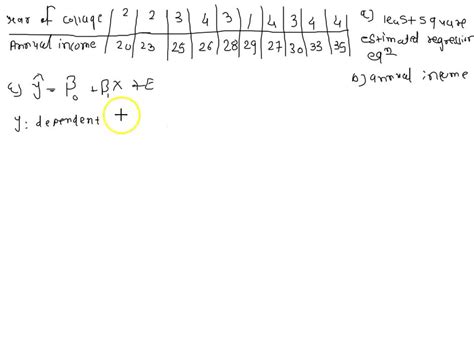 year of collage | 2 | 2 | 3 | 4 | 3 | 1 | 4 | 3 | 4 | 4
Annual income | 20 | 23 | 25 | 26 | 28 | 29 | 27 | 30 | 33 | 35
a) least square
estimated regression
eqn
b) annual income
a) ŷ = β₀ + β₁x + E
y: dependent